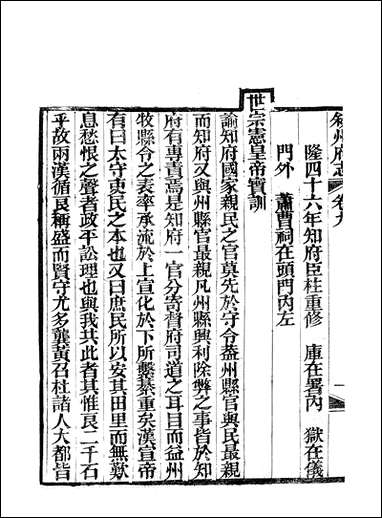 叙州府志 卷九
隆四十六年知府臣杜重修 庫在署內 獄在儀
門外 蕭曹祠在頭門內左
世宗憲皇帝寶訓
諭知府國家親民之官莫先於守令蓋州縣官與民最親
而知府又與州縣官最親凡州縣興利除弊之事皆於知
府有專責焉是知府一官分寄督府司道之耳目而益州
牧縣令之表率承流於上宣化於下所繫綦重矣漢宣帝
有曰太守吏民之本也又曰庶民所以安其田里而無歎
息愁恨之聲者政平訟理也與我其此者其惟良二千石
乎故兩漢循良稱盛而賢守尤多龔黃召杜諸人大都皆